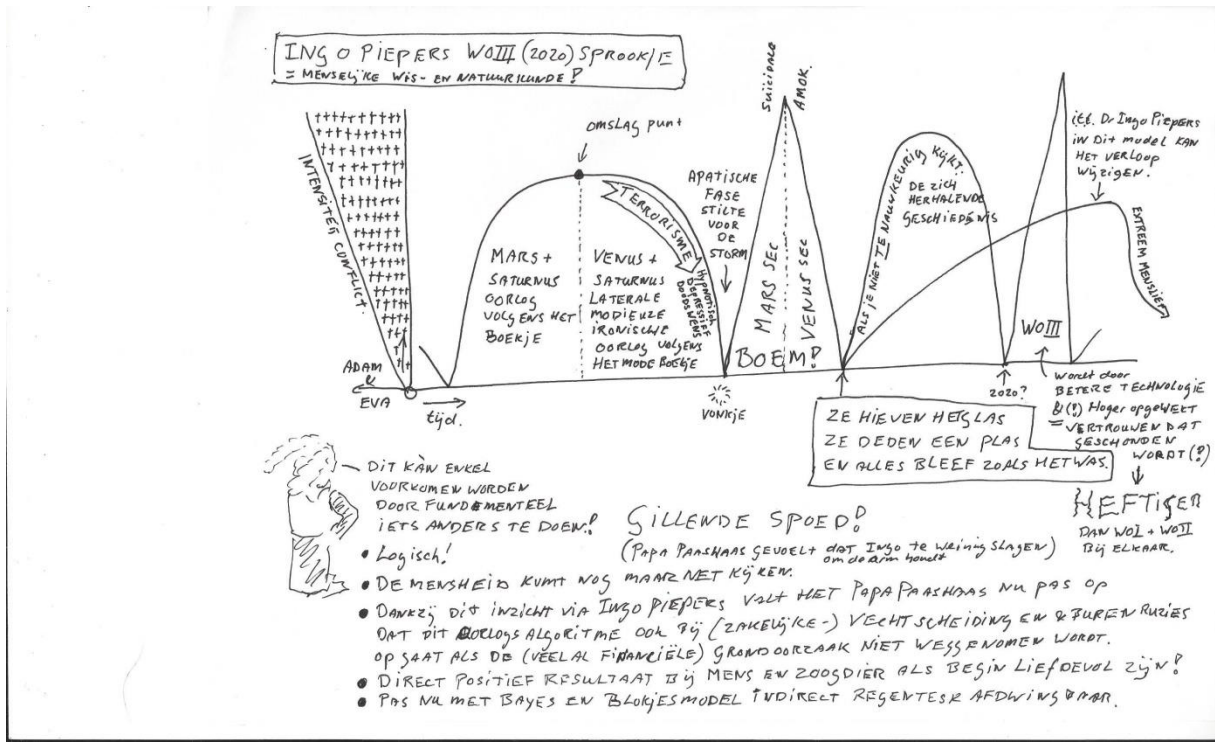 INGO PIEPERS WOIII (2020) SPROOKJE
= MENSELIJKE WIS- EN NATUURKUNDE!
INTENSITEIT CONFLICT.
ADAM
&
EVA
tijd.
OMSLAG PUNT
MARS +
SATURNUS
OORLOG
VOLGENS HET
BOEKJE
VENUS +
SATURNUS
LATERALE
MODIEUZE
IRONISCHE
OORLOG VOLGENS
HET MODE BOEKJE
TERRORISME
HYPNOTISCH
DEPRESSIEF
DOODSWENS
APATISCHE
FASE
STILTE
VOOR
DE
STORM
VONKJE
SUICIDALE
AMOK.
MARS SEC
VENUS SEC
BOEM!
ALS JE NIET TE NAUWKEURIG KIJKT.
DE ZICH
HERHALENDE
GESCHIEDENIS
2020?
WOIII
i.t.t. Dr Ingo Piepers
IN DIT MODEL KAN
HET VERLOOP
WIJZIGEN.
EXTREEM MENSLIEF
wordt door
BETERE TECHNOLOGIE
&(!) Hoger opgewekt
= VERTROUWEN DAT
GESCHONDEN
WORDT(?)
HEFTIGER
DAN WOI + WOII
BIJ ELKAAR.
ZE HIEVEN HET GLAS
ZE DEDEN EEN PLAS
EN ALLES BLEEF ZOALS HET WAS.
DIT KÀN ENKEL
VOORKOMEN WORDEN
DOOR FUNDEMENTEEL
IETS ANDERS TE DOEN!
GILLENDE SPOED!
(PAPA PAASHAAS GEVOELT DAT INGO te weinig slagen)
om de arm houdt
• Logisch!
• DE MENSHEID KUMT NOG MAAR NET KIJKEN.
• DANKZIJ DIT INZICHT VIA INGO PIEPERS VALT HET PAPA PAASHAAS NU PAS OP
DAT DIT OORLOGS ALGORITME OOK BIJ (ZAKELIJKE-) VECHTSCHEIDING EN & BUREN RUZIES
OP GAAT ALS DE (VEELAL FINANCIËLE) GRONDOORZAAK NIET WEGGENOMEN WORDT.
• DIRECT POSITIEF RESULTAAT BIJ MENS EN ZOOGDIER ALS BEGIN LIEFDEVOL ZIJN!
• PAS NU MET BAYES EN BLOKJESMODEL INDIRECT REGENTESK AFDWINGBAAR.